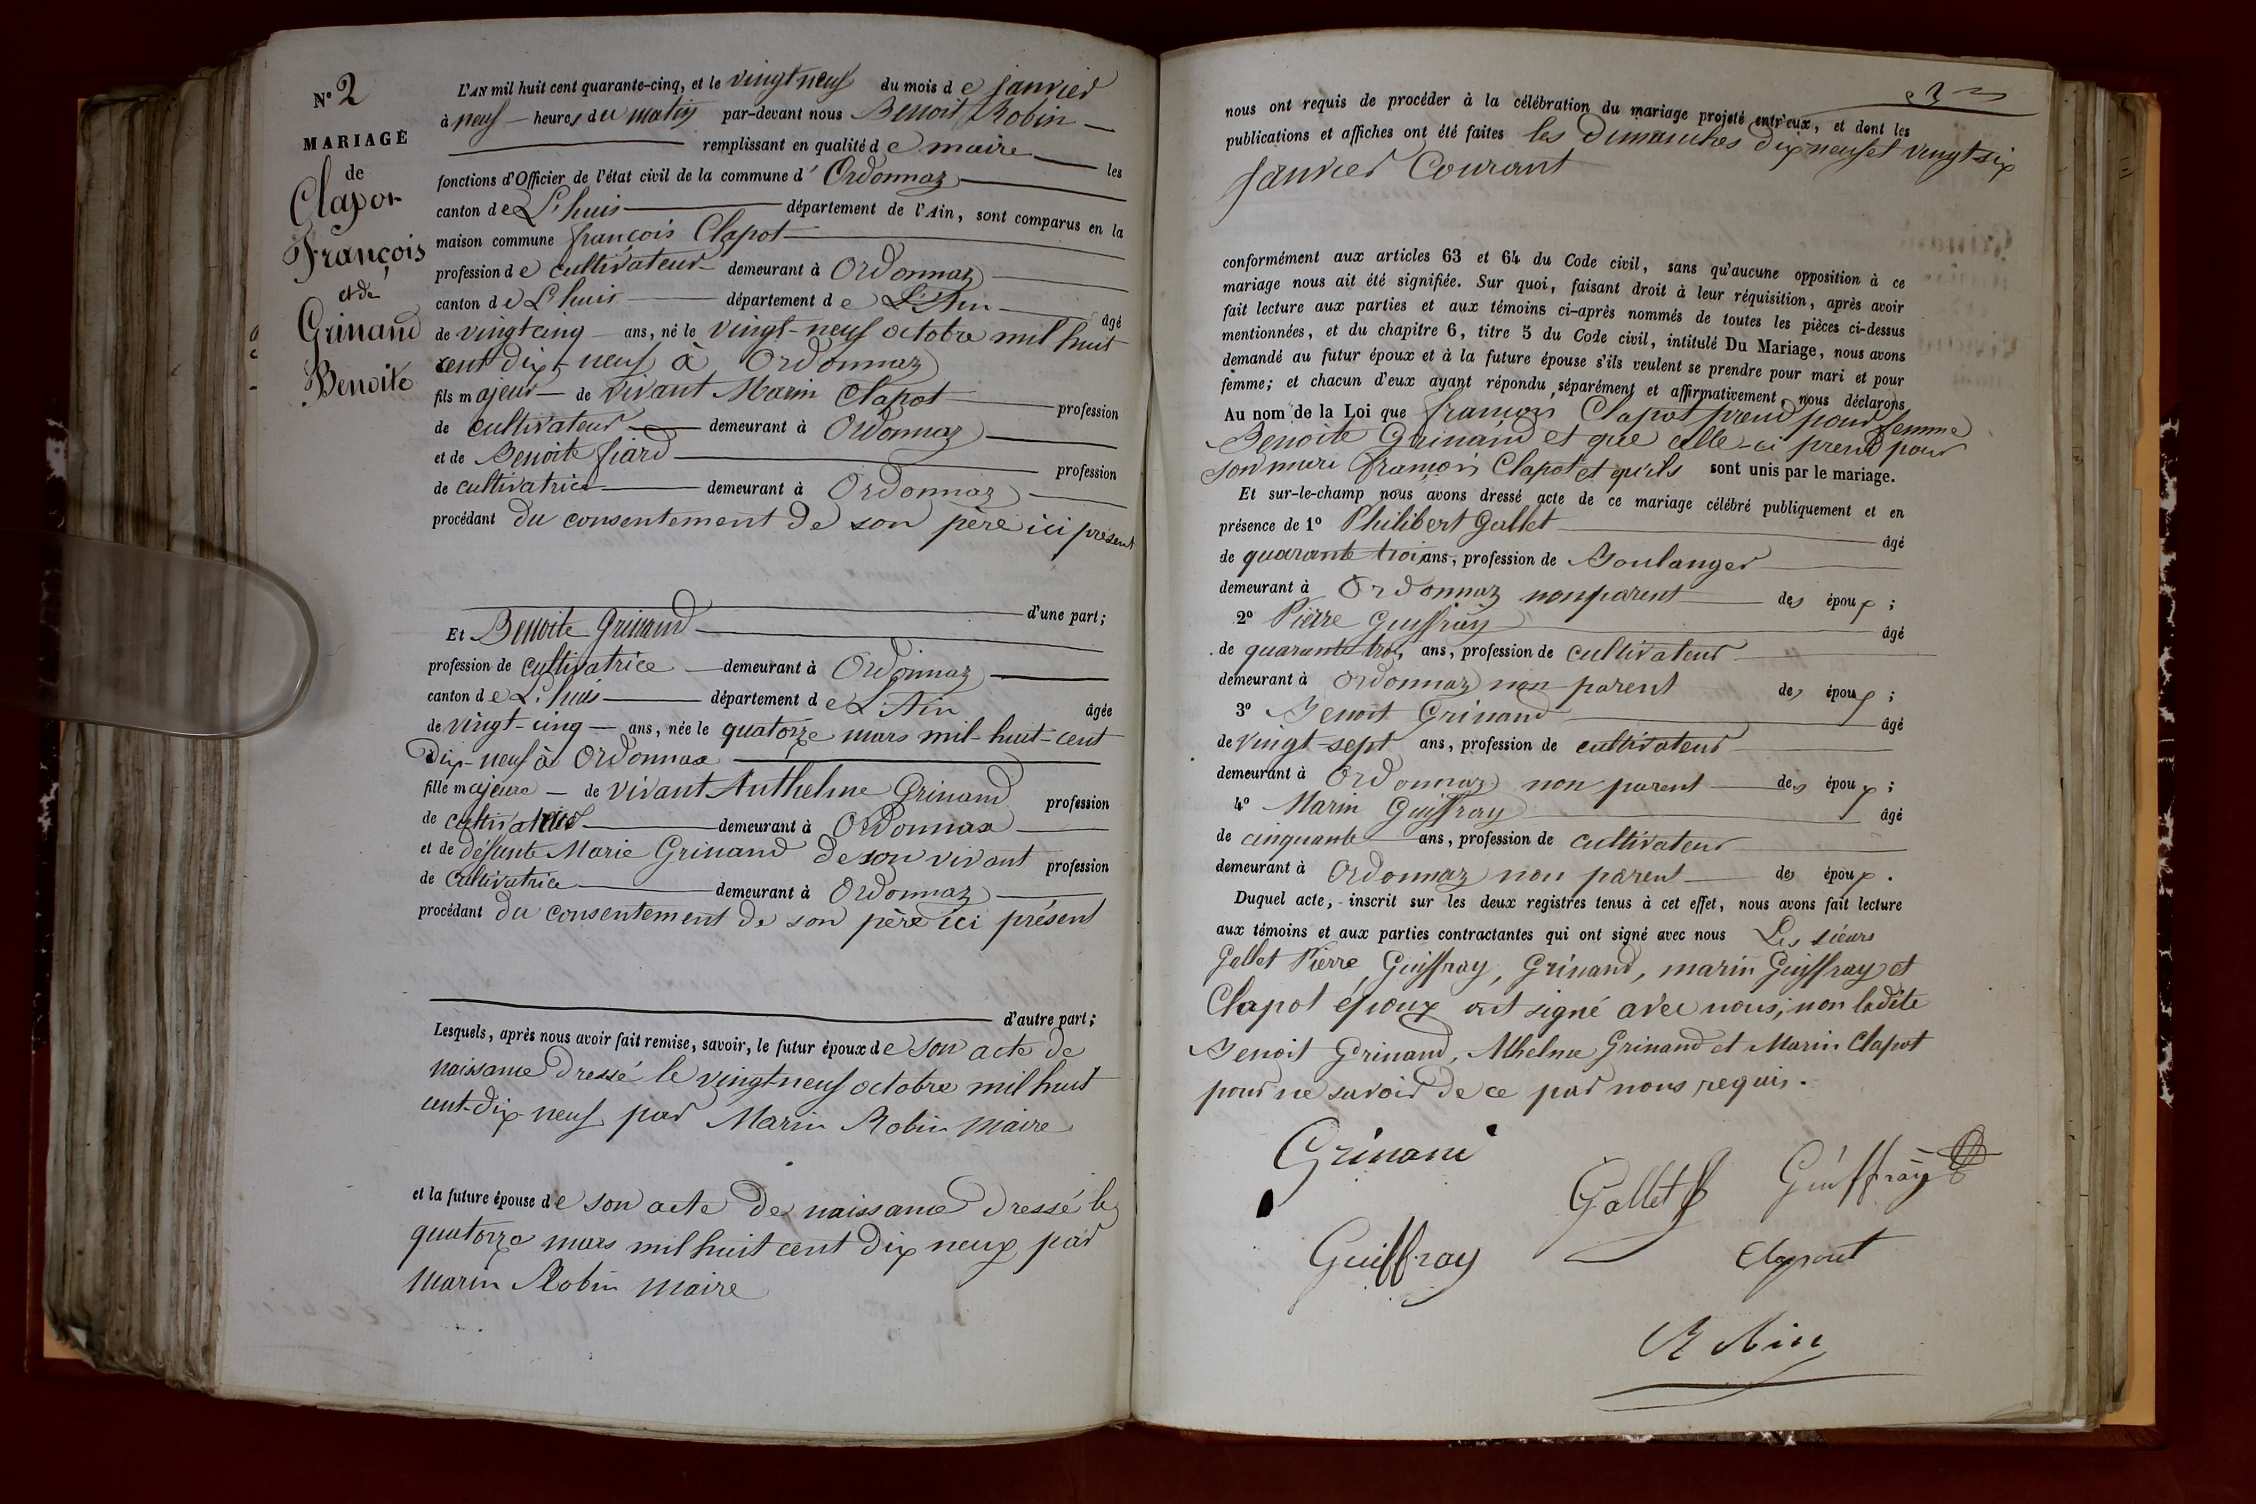 N° 2
MARIAGE
de
Clapot
François
et de
Grinand
Benoite
L'AN mil huit cent quarante-cinq, et le vingt neuf du mois de janvier
à neuf heures du matin par-devant nous Benoit Robin
remplissant en qualité de maire les
fonctions d'Officier de l'état civil de la commune d' Ordonnaz
canton de L'huis département de l'Ain, sont comparus en la
maison commune françois Clapot
profession de cultivateur demeurant à Ordonnaz
canton de L'huis département de L'Ain âgé
de vingt cinq ans, né le vingt-neuf octobre mil huit
cent dix neuf à Ordonnaz
fils majeur de vivant Marin Clapot profession
de cultivateur demeurant à Ordonnaz
et de Benoite fiard profession
de cultivatrice demeurant à Ordonnaz
procédant du consentement de son père ici présent
d'une part;
Et Benoite Grinand
profession de cultivatrice demeurant à Ordonnaz
canton de L'huis département de L'Ain âgée
de vingt-cinq ans, née le quatorze mars mil-huit-cent
dix-neuf à Ordonnaz
fille majeure de vivant Anthelme Grinand profession
de cultivateur demeurant à Ordonnaz
et de défunte Marie Grinand de son vivant profession
de cultivatrice demeurant à Ordonnaz
procédant du consentement de son père ici présent
d'autre part;
Lesquels, après nous avoir fait remise, savoir, le futur époux de son acte de
naissance dressé le vingt neuf octobre mil huit
cent-dix neuf par Marin Robin maire
et la future épouse de son acte de naissance dressé le
quatorze mars mil huit cent dix neuf par
Marin Robin maire
nous ont requis de procéder à la célébration du mariage projeté entr'eux, et dont les
publications et affiches ont été faites les dimanches dix neuf et vingt six
janvier courant
conformément aux articles 63 et 64 du Code civil, sans qu'aucune opposition à ce
mariage nous ait été signifiée. Sur quoi, faisant droit à leur réquisition, après avoir
fait lecture aux parties et aux témoins ci-après nommés de toutes les pièces ci-dessus
mentionnées, et du chapitre 6, titre 5 du Code civil, intitulé Du Mariage, nous avons
demandé au futur époux et à la future épouse s'ils veulent se prendre pour mari et pour
femme; et chacun d'eux ayant répondu séparément et affirmativement, nous déclarons
Au nom de la Loi que françois Clapot prend pour femme
Benoite Grinand et que celle-ci prend pour
son mari françois Clapot et qu'ils sont unis par le mariage.
Et sur-le-champ nous avons dressé acte de ce mariage célébré publiquement et en
présence de 1° Philibert Gallet âgé
de quarante trois ans, profession de Boulanger
demeurant à Ordonnaz non parent des époux;
2° Pierre Guiffray âgé
de quarante trois ans, profession de cultivateur
demeurant à Ordonnaz non parent des époux;
3° Benoit Grinand âgé
de vingt-sept ans, profession de cultivateur
demeurant à Ordonnaz non parent des époux;
4° Marin Guiffray âgé
de cinquante ans, profession de cultivateur
demeurant à Ordonnaz non parent des époux.
Duquel acte, inscrit sur les deux registres tenus à cet effet, nous avons fait lecture
aux témoins et aux parties contractantes qui ont signé avec nous Les sieurs
Gallet Pierre Guiffray, Grinand, marin Guiffray et
Clapot époux ont signé avec nous, non ladite
Benoit Grinand, Athelme Grinand et Marin Clapot
pour ne savoir de ce par nous requis.
Grinand
Gallet
Guiffray
Guiffray
Clapout
Robin